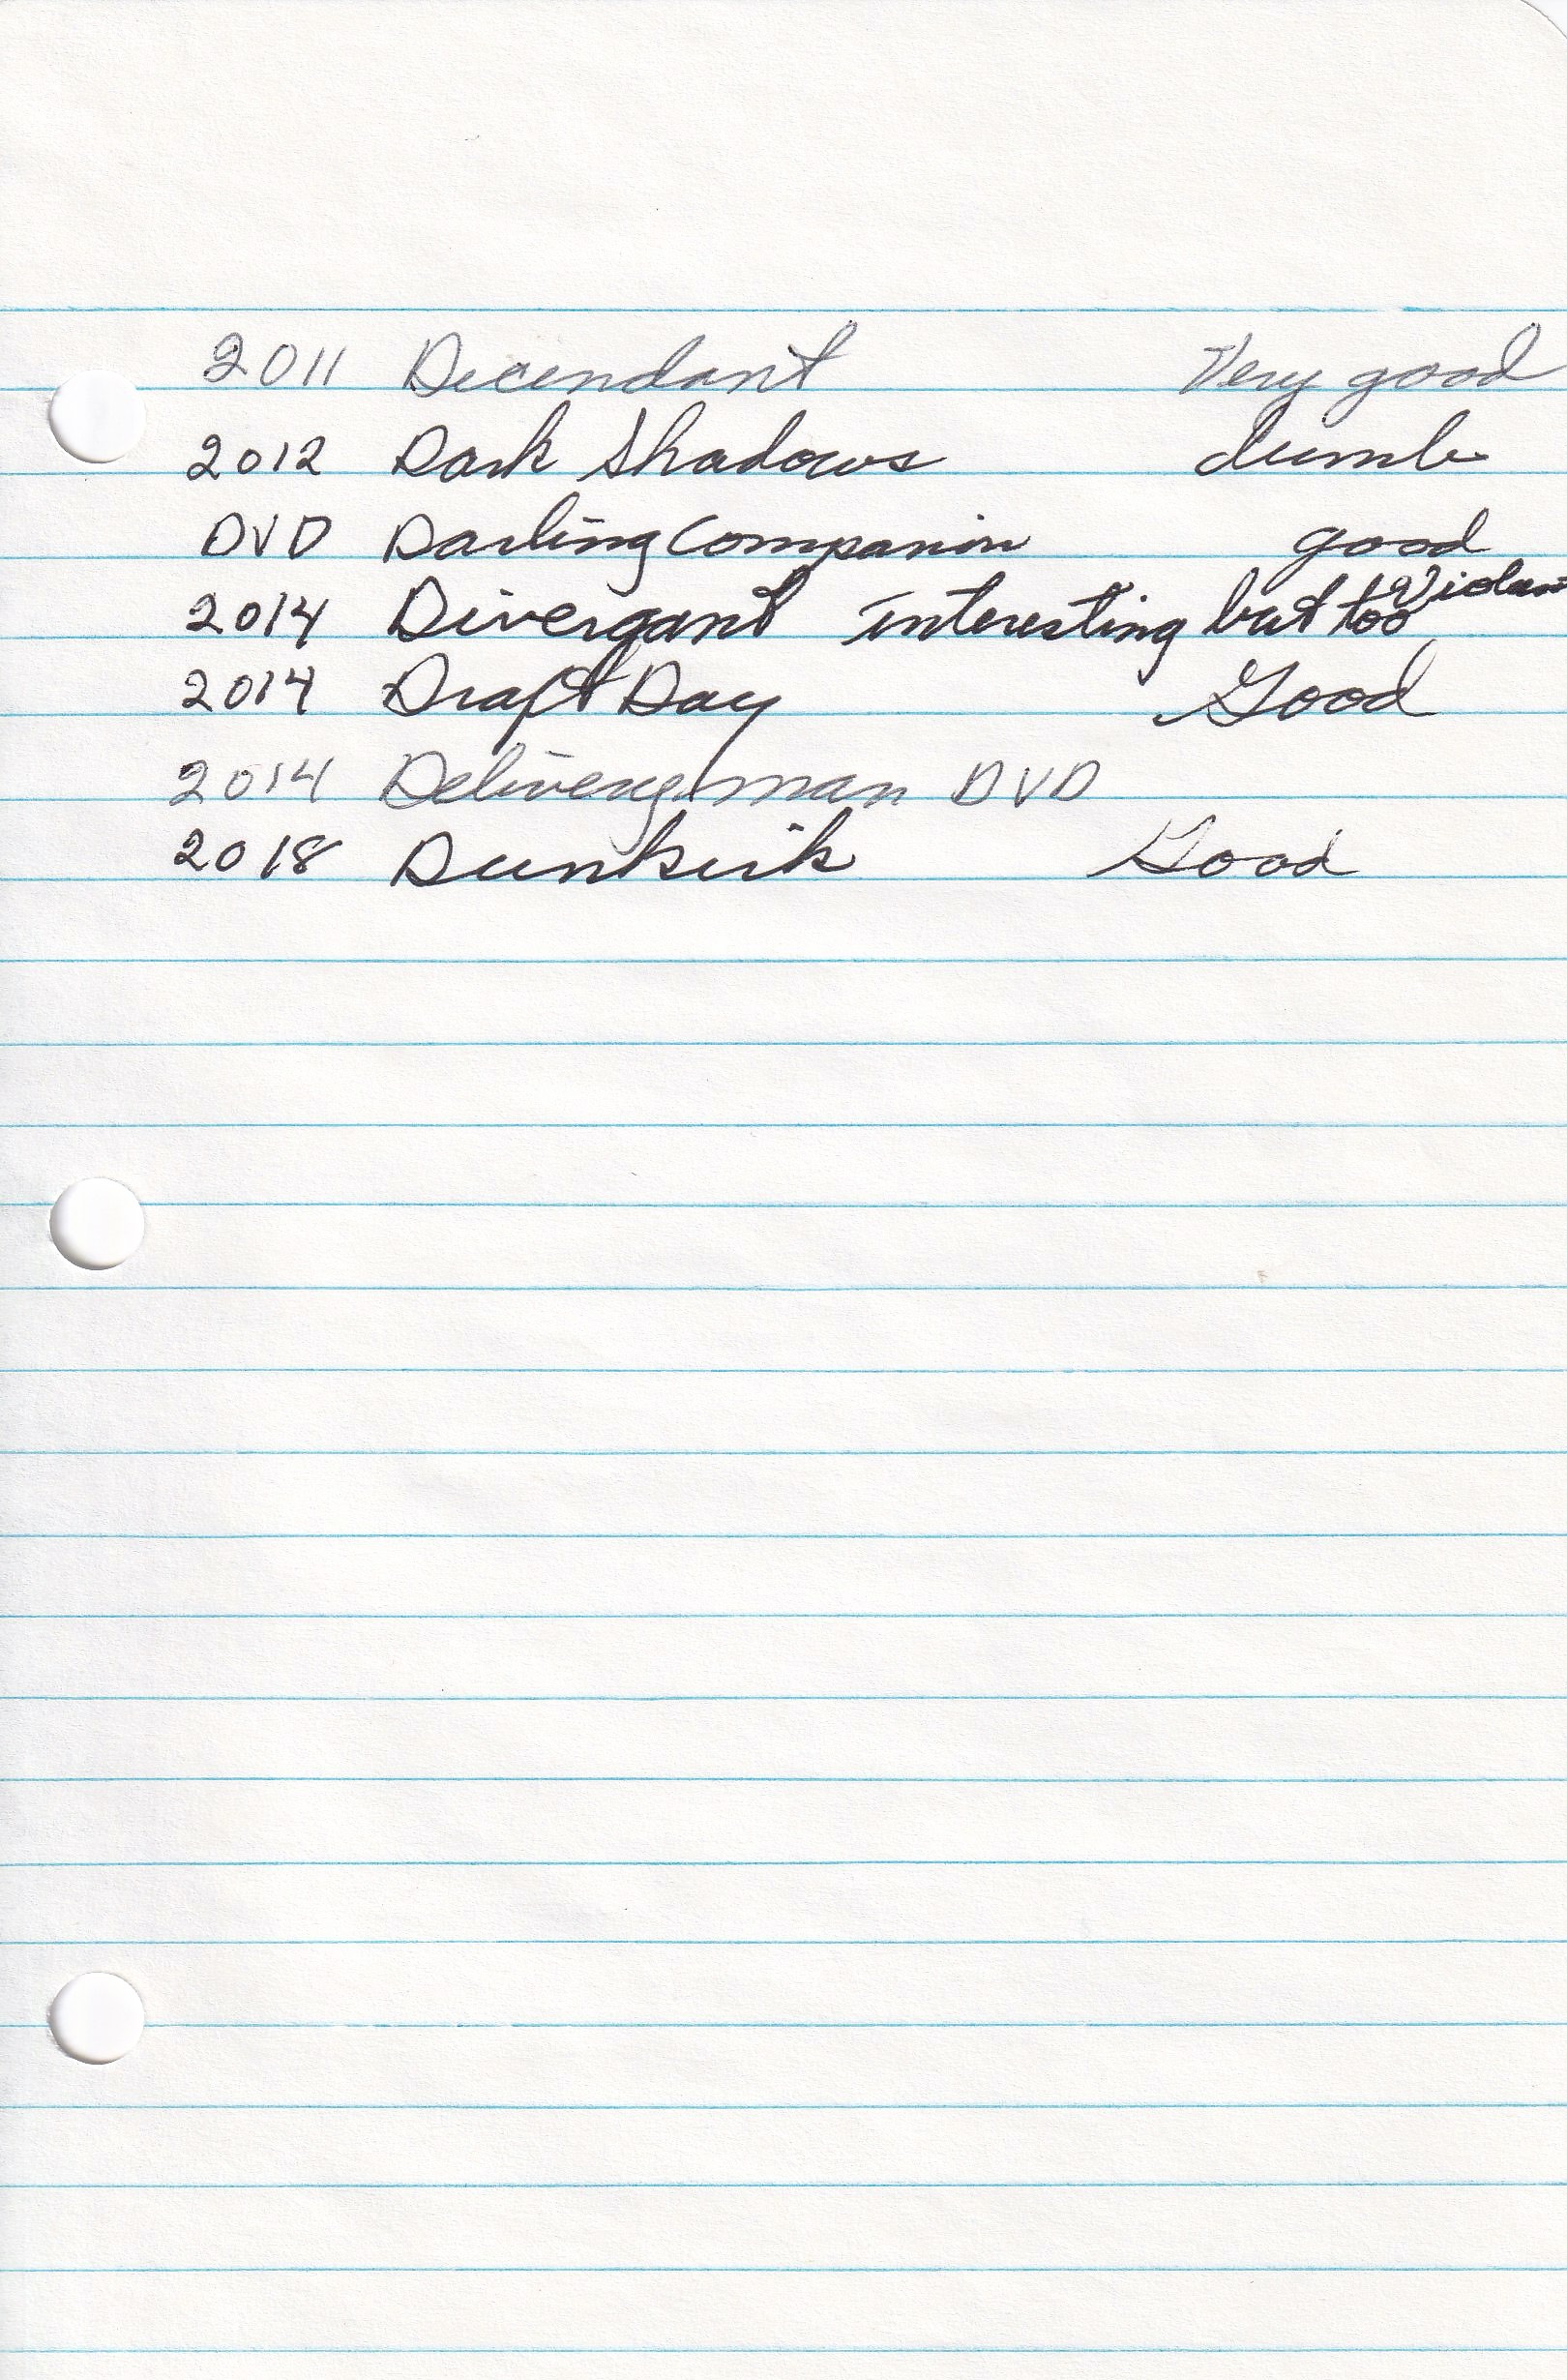 2011 Decendant Very good
2012 Dark Shadows dumb
DVD Darling Companion good
2014 Divergant interesting but too Violent
2014 Draft Day Good
2014 Delivery man DVD
2018 Dunkirk Good